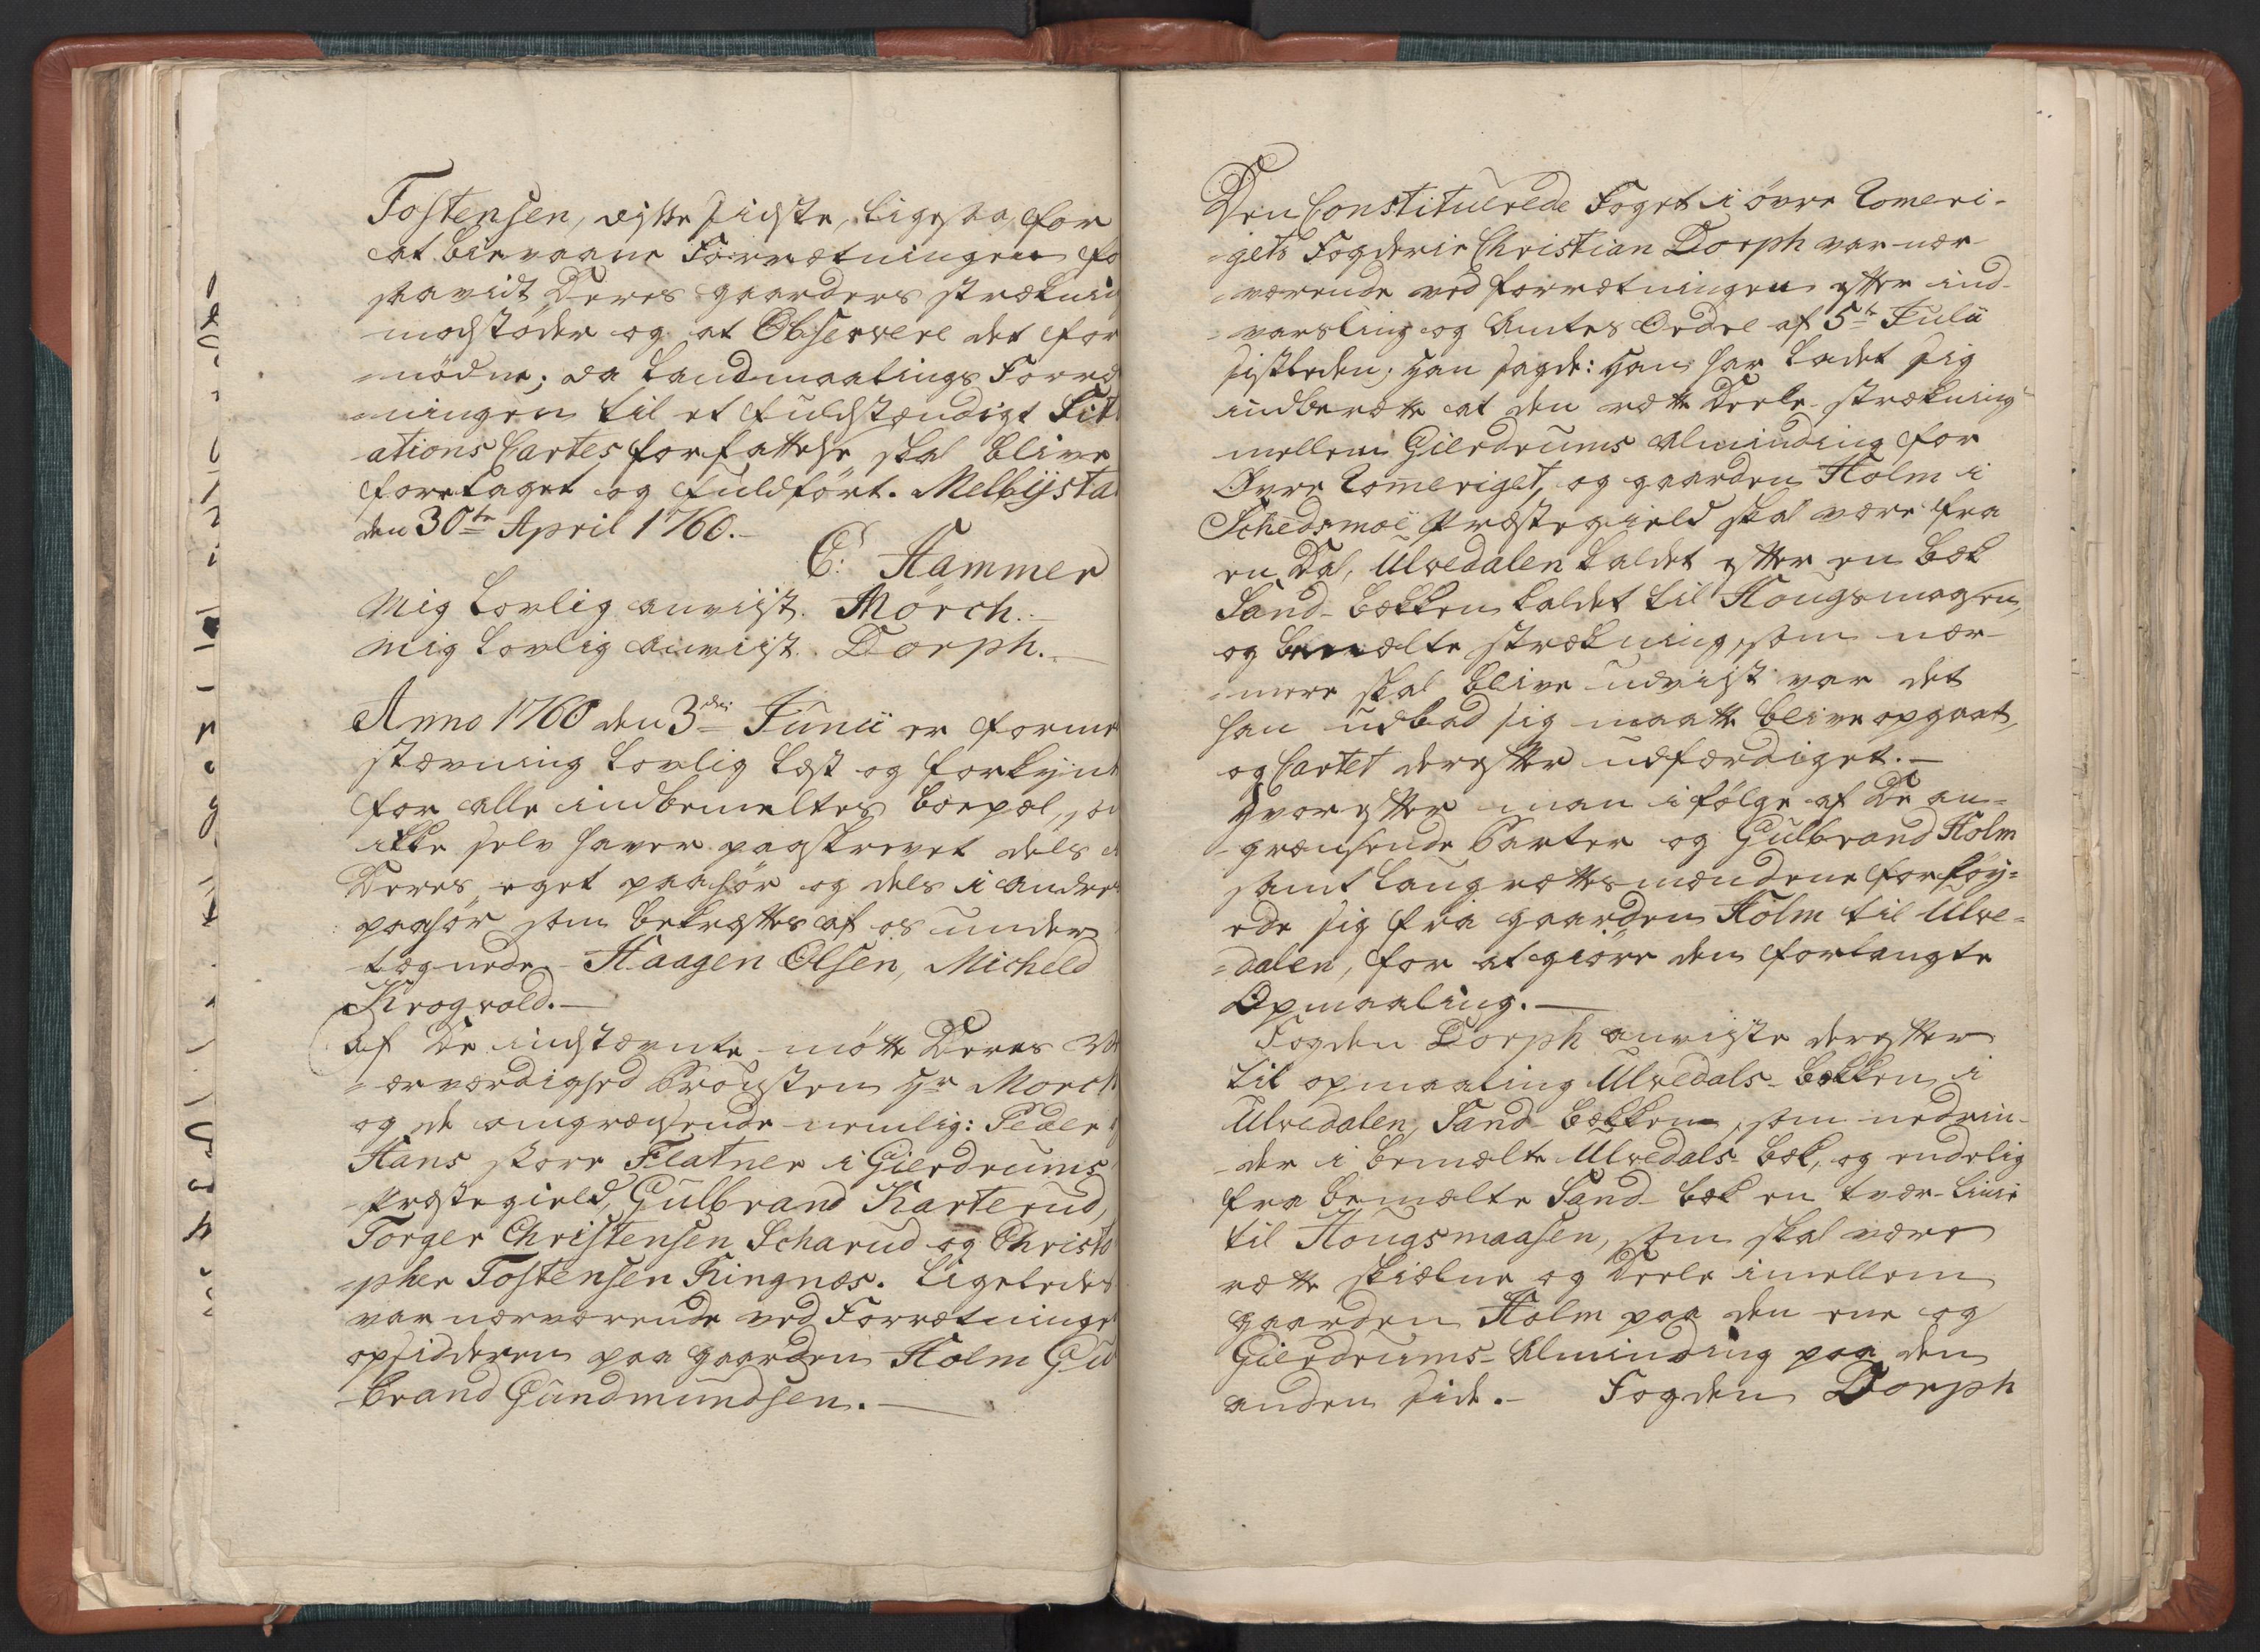 Tostensen, disse sidste, ligesaa for
at bievaane Forretningen fo
saavidt Deres gaarders strækning
modstöder og at Observere det for
nödne; da Landmaalings Forre
ningen til et fuldstændigt Sit
ations Cartes forfattelse skal blive
foretaget og fuldfört. Melbÿsta
den 30te April 1760.
C: Hammer
Mig lovlig anviist. Mörch.
Mig lovlig anviist. Dorph.
Anno 1760 den 3die Junii er forme
stævning lovlig læst og forkÿnt
for alle indbemeltes boepæl, so
ikke selv haver paaskrevet dels i
Deres eget paahör og dels i andres
paahör som bekræftes af os under
tegnede. Haagen Olsen, Micheld
Krogvold.
Af De indstævnte mötte Deres
ærværdighed Provsten Hr Morch
og de omgrændsende nemlig: Peder
Hans store Flatner i Gierdrums
Præstegield, Gulbrand Karterud,
Torger Christensen Scharud og Christo
pher Tostensen Ringnæs. Ligeledes
var nærværende ved Forretninge
opsidderen paa gaarden Holm Gu
brand Gundmundsen.
Den Constituerede Foget i övre Romeri-
gets Fogderie Christian Dorph var nær-
værende ved forretningen efter ind-
varsling og Amtes Ordre af 5te Julii
sistleden; Han sagde: Han har ladet sig
indberette at den rette Deele strækning
mellem Gierdrums Alminding for
Övre Romeriget, og gaarden Holm i
Schedsmoe Præstegield skal være fra
en Dal, Ulvedalen kaldet efter en bæk
Sand-bekken kaldet til Hougsmaasen,
og bemelte strækning, som nær-
mere skal blive udviist var det
han udbad sig maatte blive opgaat,
og Cartet derefter udfærdiget.
Hvorefter man ifölge af De an-
grænsende Parter og Gulbrand Holm
samt Laugrettesmændene forföy-
ede sig fra gaarden Holm til Ulve-
dalen, for at giöre den forlangte
Opmaaling.
Fogden Dorph anviste derefter
til opmaaling Ulvedals-bekken i
Ulvedalen, Sand-bekken, som nedrin-
der i bemelte Ulvedals-bek, og endelig
fra bemelte Sand-bek en tvær-Linie
til Hougsmaasen, som skal være
rette skielne og deele imellem
gaarden Holm paa den ene og
Gierdrums-Alminding paa den
anden side. Fogden Dorph